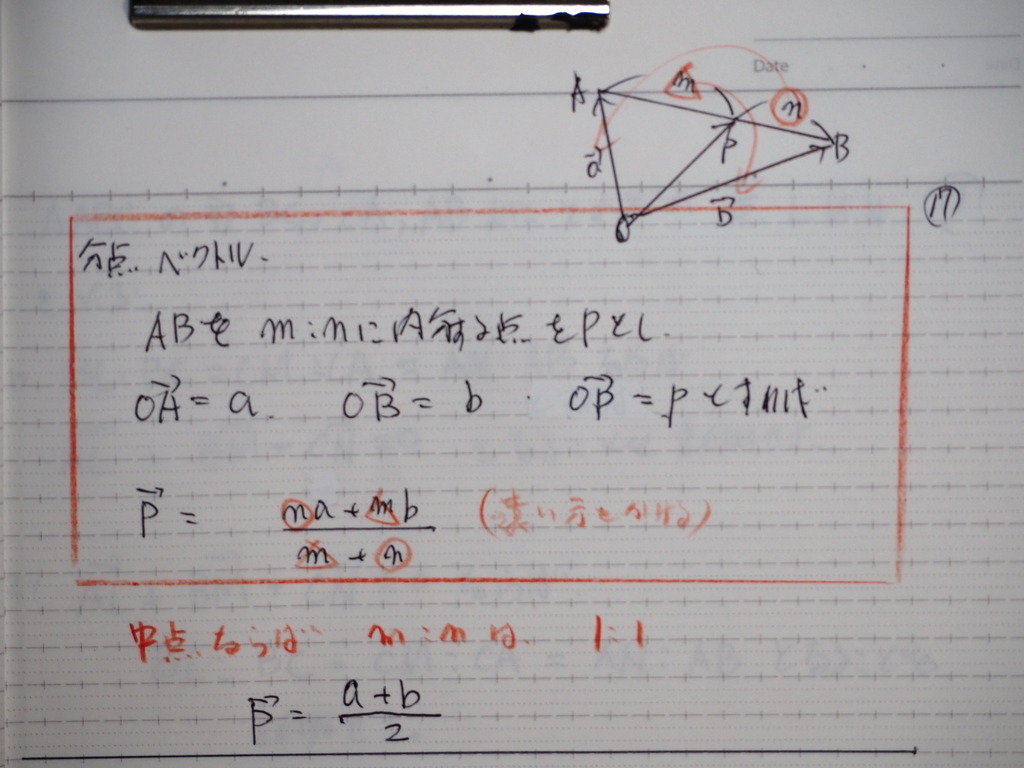 Date
A m n
P B
a⃗
b⃗
O
⑰
分点ベクトル.
ABを m:nに内分する点をPとし.
OA⃗ = a. OB⃗ = b . OP⃗ = p とすれば
P⃗ = (na + mb)/(m + n) (遠い方をかける)
中点ならば m:n は. 1:1
P⃗ = (a + b)/2